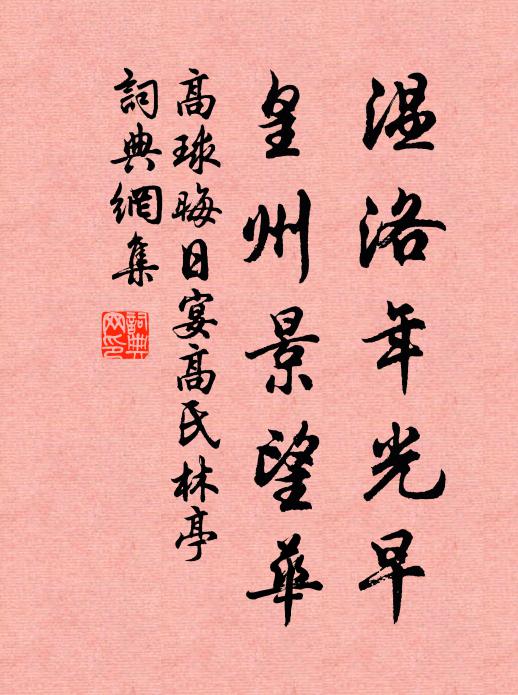 温洛年光早
皇州景望華
高球晦日宴高氏林亭
詞典網集
詞典網印